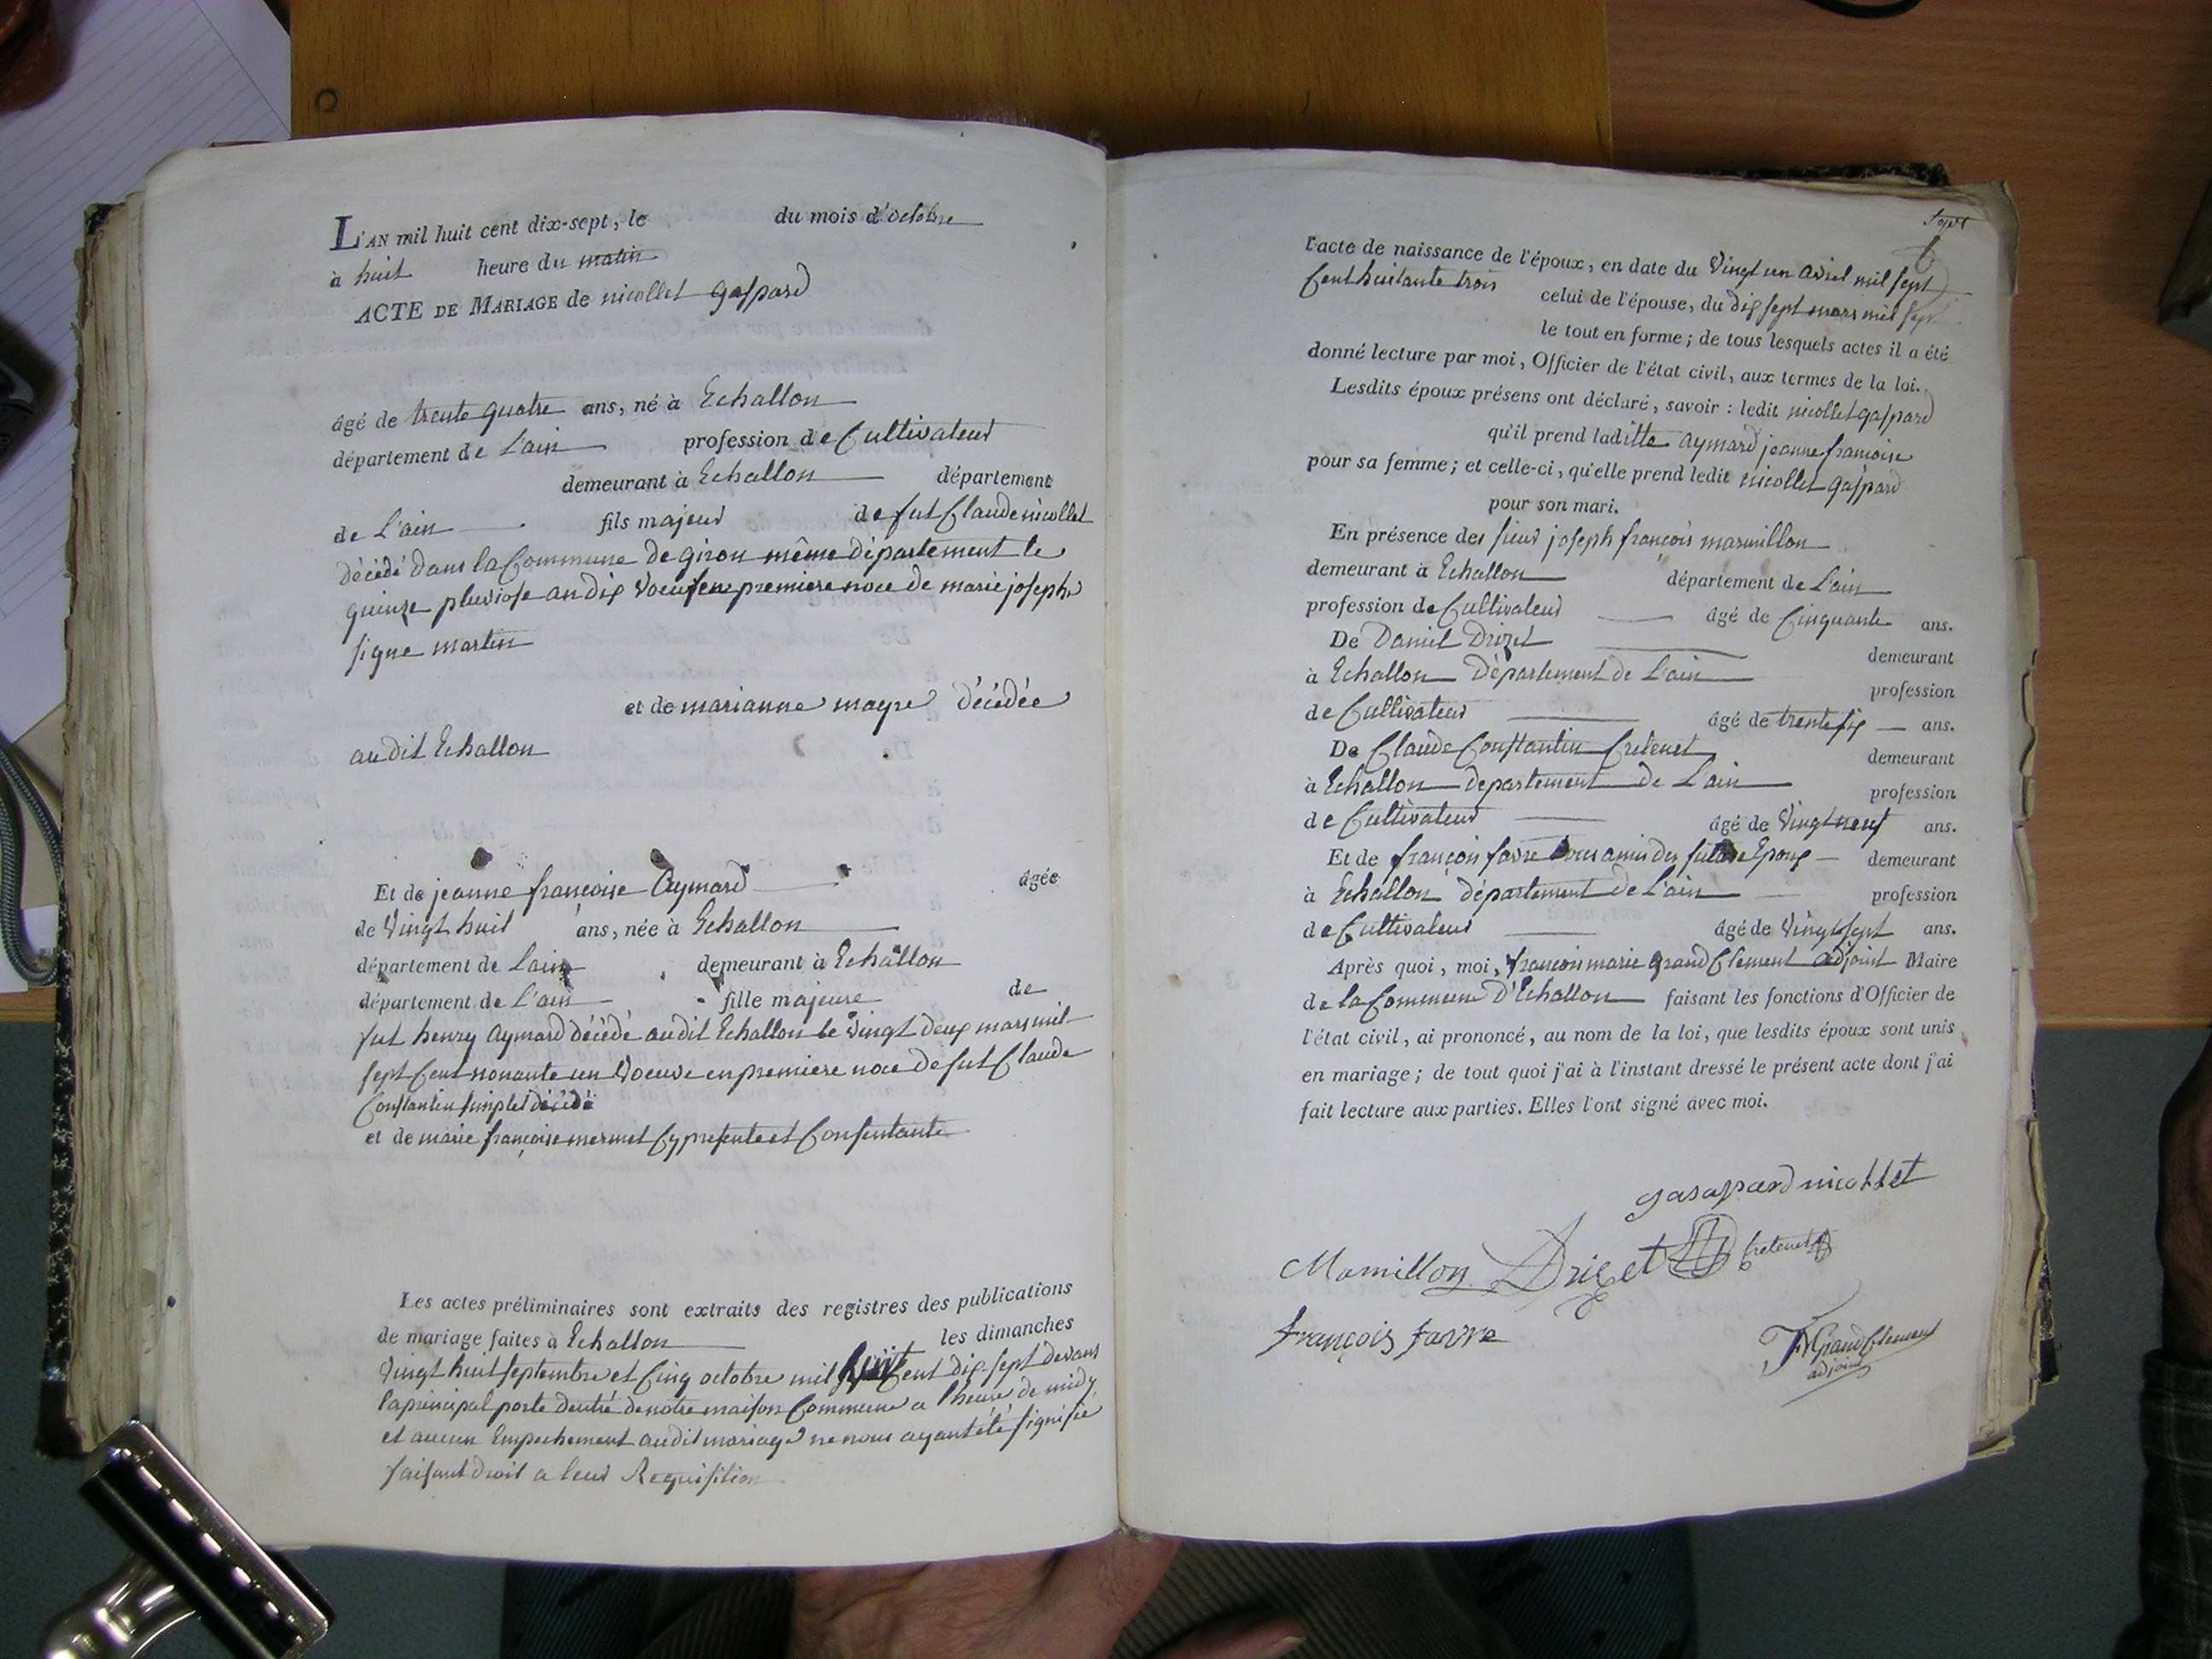 L'AN mil huit cent dix-sept, le du mois d'octobre
à huit heure du matin
ACTE DE MARIAGE de nicollet gaspard
âgé de trente quatre ans, né à Echallon
département de L'ain profession de Cultivateur
demeurant à Echallon département
de L'ain fils majeur de fut Claude nicollet
décédé dans la Commune de giron même département le
quinze pluviose an dix voeuf en premiere noce de marie josephe
figue martin
et de marianne mayre décédée
au dit Echallon
Et de jeanne françoise Aymard âgée
de Vingt huit ans, née à Echallon
département de Lain demeurant à Echallon
département de L'ain fille majeure de
fut henry Aymard décédé audit Echallon le vingt deux mars mil
sept Cent nonante un Voeuve en premiere noce de fut Claude
Constantin décédé
et de marie françoise mermet Cy presente et Consentante
Les actes préliminaires sont extraits des registres des publications
de mariage faites à Echallon les dimanches
vingt huit septembre et Cinq octobre mil huit Cent dix-sept devant
la principal porte dentré de notre maison Commune a lheure de midy
et aucun Empechement audit mariage ne nous ayant été signifie
faisant droit a leur Requisition
sept
l'acte de naissance de l'époux, en date du Vingt un avril mil sept
Cent huitante trois celui de l'épouse, du dix sept mars mil sept
le tout en forme; de tous lesquels actes il a été
donné lecture par moi, Officier de l'état civil, aux termes de la loi.
Lesdits époux présens ont déclaré, savoir : ledit nicollet gaspard
qu'il prend laditte aymard jeanne francoise
pour sa femme; et celle-ci, qu'elle prend ledit nicollet gaspard
pour son mari.
En présence des sieur joseph françois marmillon
demeurant à Echallon département de L'ain
profession de Cultivateur âgé de Cinquante ans.
De Daniel Drizet demeurant
à Echallon Département de L'ain profession
de Cultivateur âgé de trente six ans.
De Claude Constantin Cretenet demeurant
à Echallon departement de L'ain profession
de Cultivateur âgé de Vingt neuf ans.
Et de françois favre tous amis des future Epoux demeurant
à Echallon département de L'ain profession
de Cultivateur âgé de Vingt sept ans.
Après quoi, moi, françois marie grand Clement adjoint Maire
de la Commune D'Echallon faisant les fonctions d'Officier de
l'état civil, ai prononcé, au nom de la loi, que lesdits époux sont unis
en mariage; de tout quoi j'ai à l'instant dressé le présent acte dont j'ai
fait lecture aux parties. Elles l'ont signé avec moi.
gasapard nicollet
Mamillon Drizet Cretenet
françois favre
FM GrandClement
adjoint